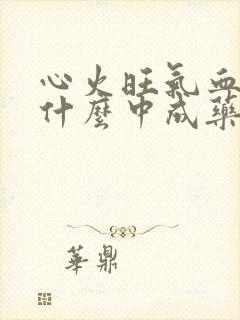 心火旺氣血
什麼中成藥
華鼎